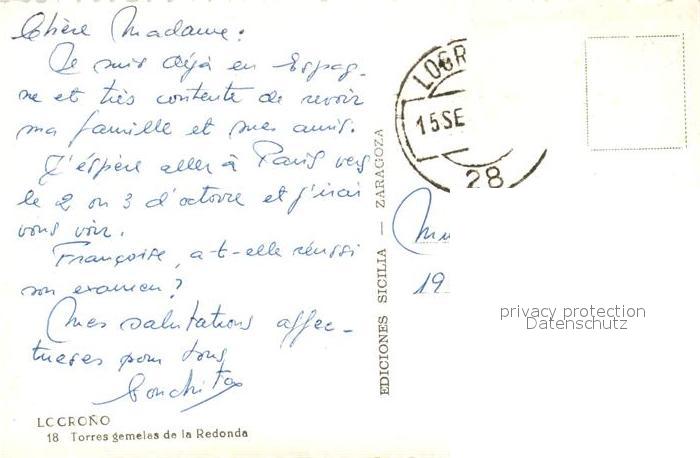 Chère Madame:
Je suis déjà en Espag-
ne et très contente de revoir
ma famille et mes amis.
J'éspère aller à Paris vers
le 2 on 3 d'octovre et j'irai
vous voir.
Françoise, a-t-elle réussi
son examen?
Mes salutations affec-
tueses pour tous
Conchita
LOGROÑO
18 Torres gemelas de la Redonda
EDICIONES SICILIA — ZARAGOZA
LOGR
15 SE
28
19
privacy protection
Datenschutz